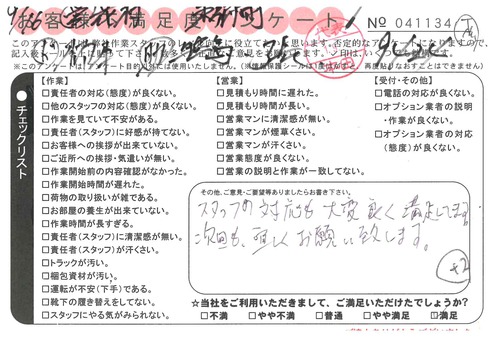 お客 満足度 ケート
No 041134
【作業】
□責任者の対応(態度)が良くない。
□他のスタッフの対応(態度)が良くない。
□作業を見ていて不安がある。
□責任者(スタッフ)に好感が持てない。
□お客様への挨拶が出来ていない。
□ご近所への挨拶・気遣いが無い。
□作業開始前の内容確認がなかった。
□作業開始時間が遅れた。
□荷物の取り扱いが雑である。
□お部屋の養生が出来ていない。
□作業時間が長すぎる。
□責任者(スタッフ)に清潔感が無い。
□責任者(スタッフ)が汗くさい。
□トラックが汚い。
□梱包資材が汚い。
□運転が不安(下手)である。
□靴下の履き替えをしてない。
□スタッフにやる気がみられない。
【営業】
□見積もり時間に遅れた。
□見積もり時間が長い。
□営業マンに清潔感が無い。
□営業マンが煙草くさい。
□営業マンが汗くさい。
□営業態度が良くない。
□営業の説明と作業が一致してない。
【受付・その他】
□電話の対応が良くない。
□オプション業者の説明
・作業が良くない。
□オプション業者の対応
(態度)が良くない。
チェックリスト
その他、ご意見・ご要望等ありましたらお書き下さい。
スタッフの対応も大変良く満足してます。
次回も、宜しくお願い致します。
+2
☆当社をご利用いただきまして、ご満足いただけたでしょうか?
□不満 □やや不満 □普通 □やや満足 ☑満足